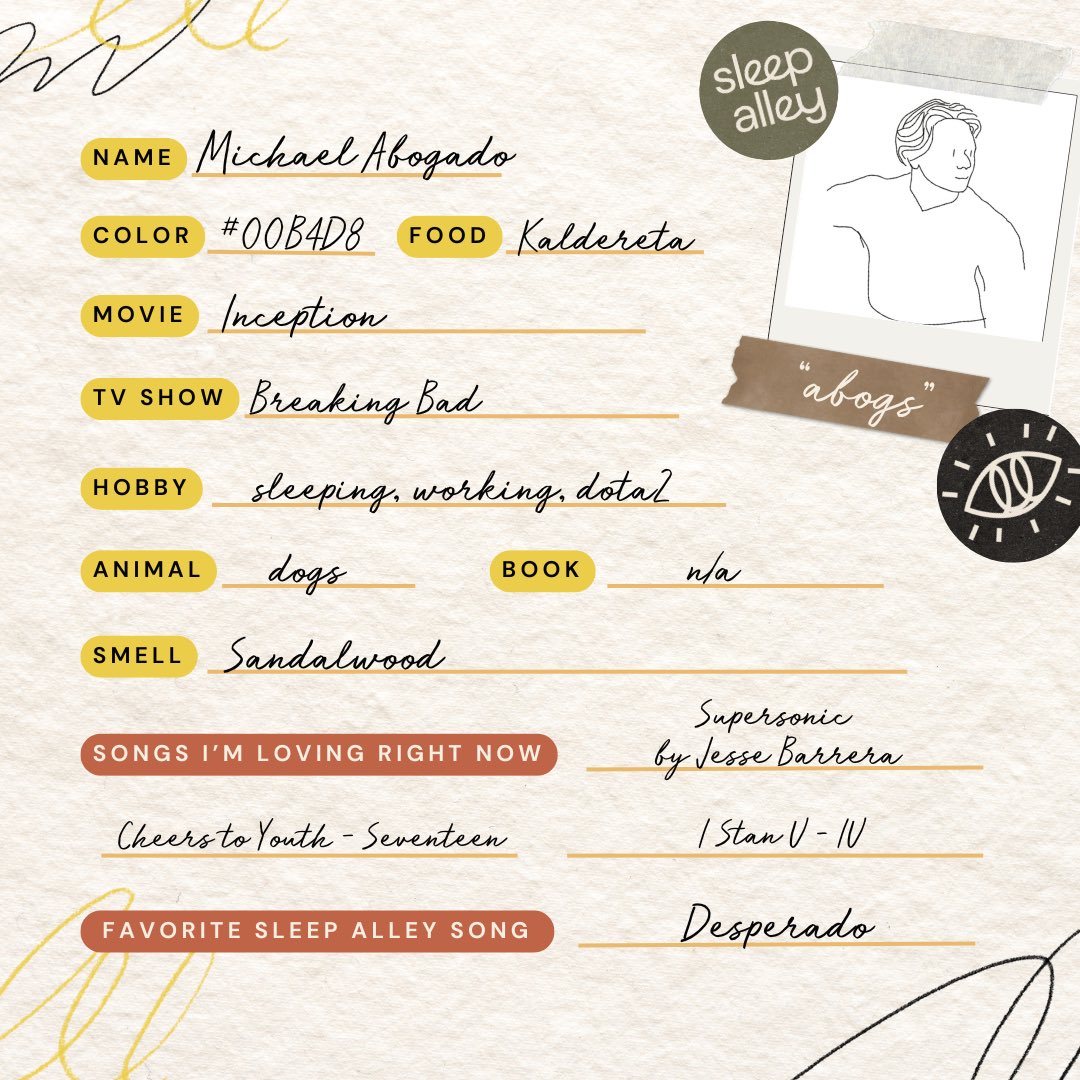 sleep
alley
NAME Michael Abogado
COLOR #00B4D8 FOOD Kaldereta
MOVIE Inception
TV SHOW Breaking Bad
"abogs"
HOBBY sleeping, working, dota2
ANIMAL dogs BOOK n/a
SMELL Sandalwood
SONGS I'M LOVING RIGHT NOW
Supersonic
by Jesse Barrera
Cheers to Youth - Seventeen
I Stan U - IU
FAVORITE SLEEP ALLEY SONG Desperado